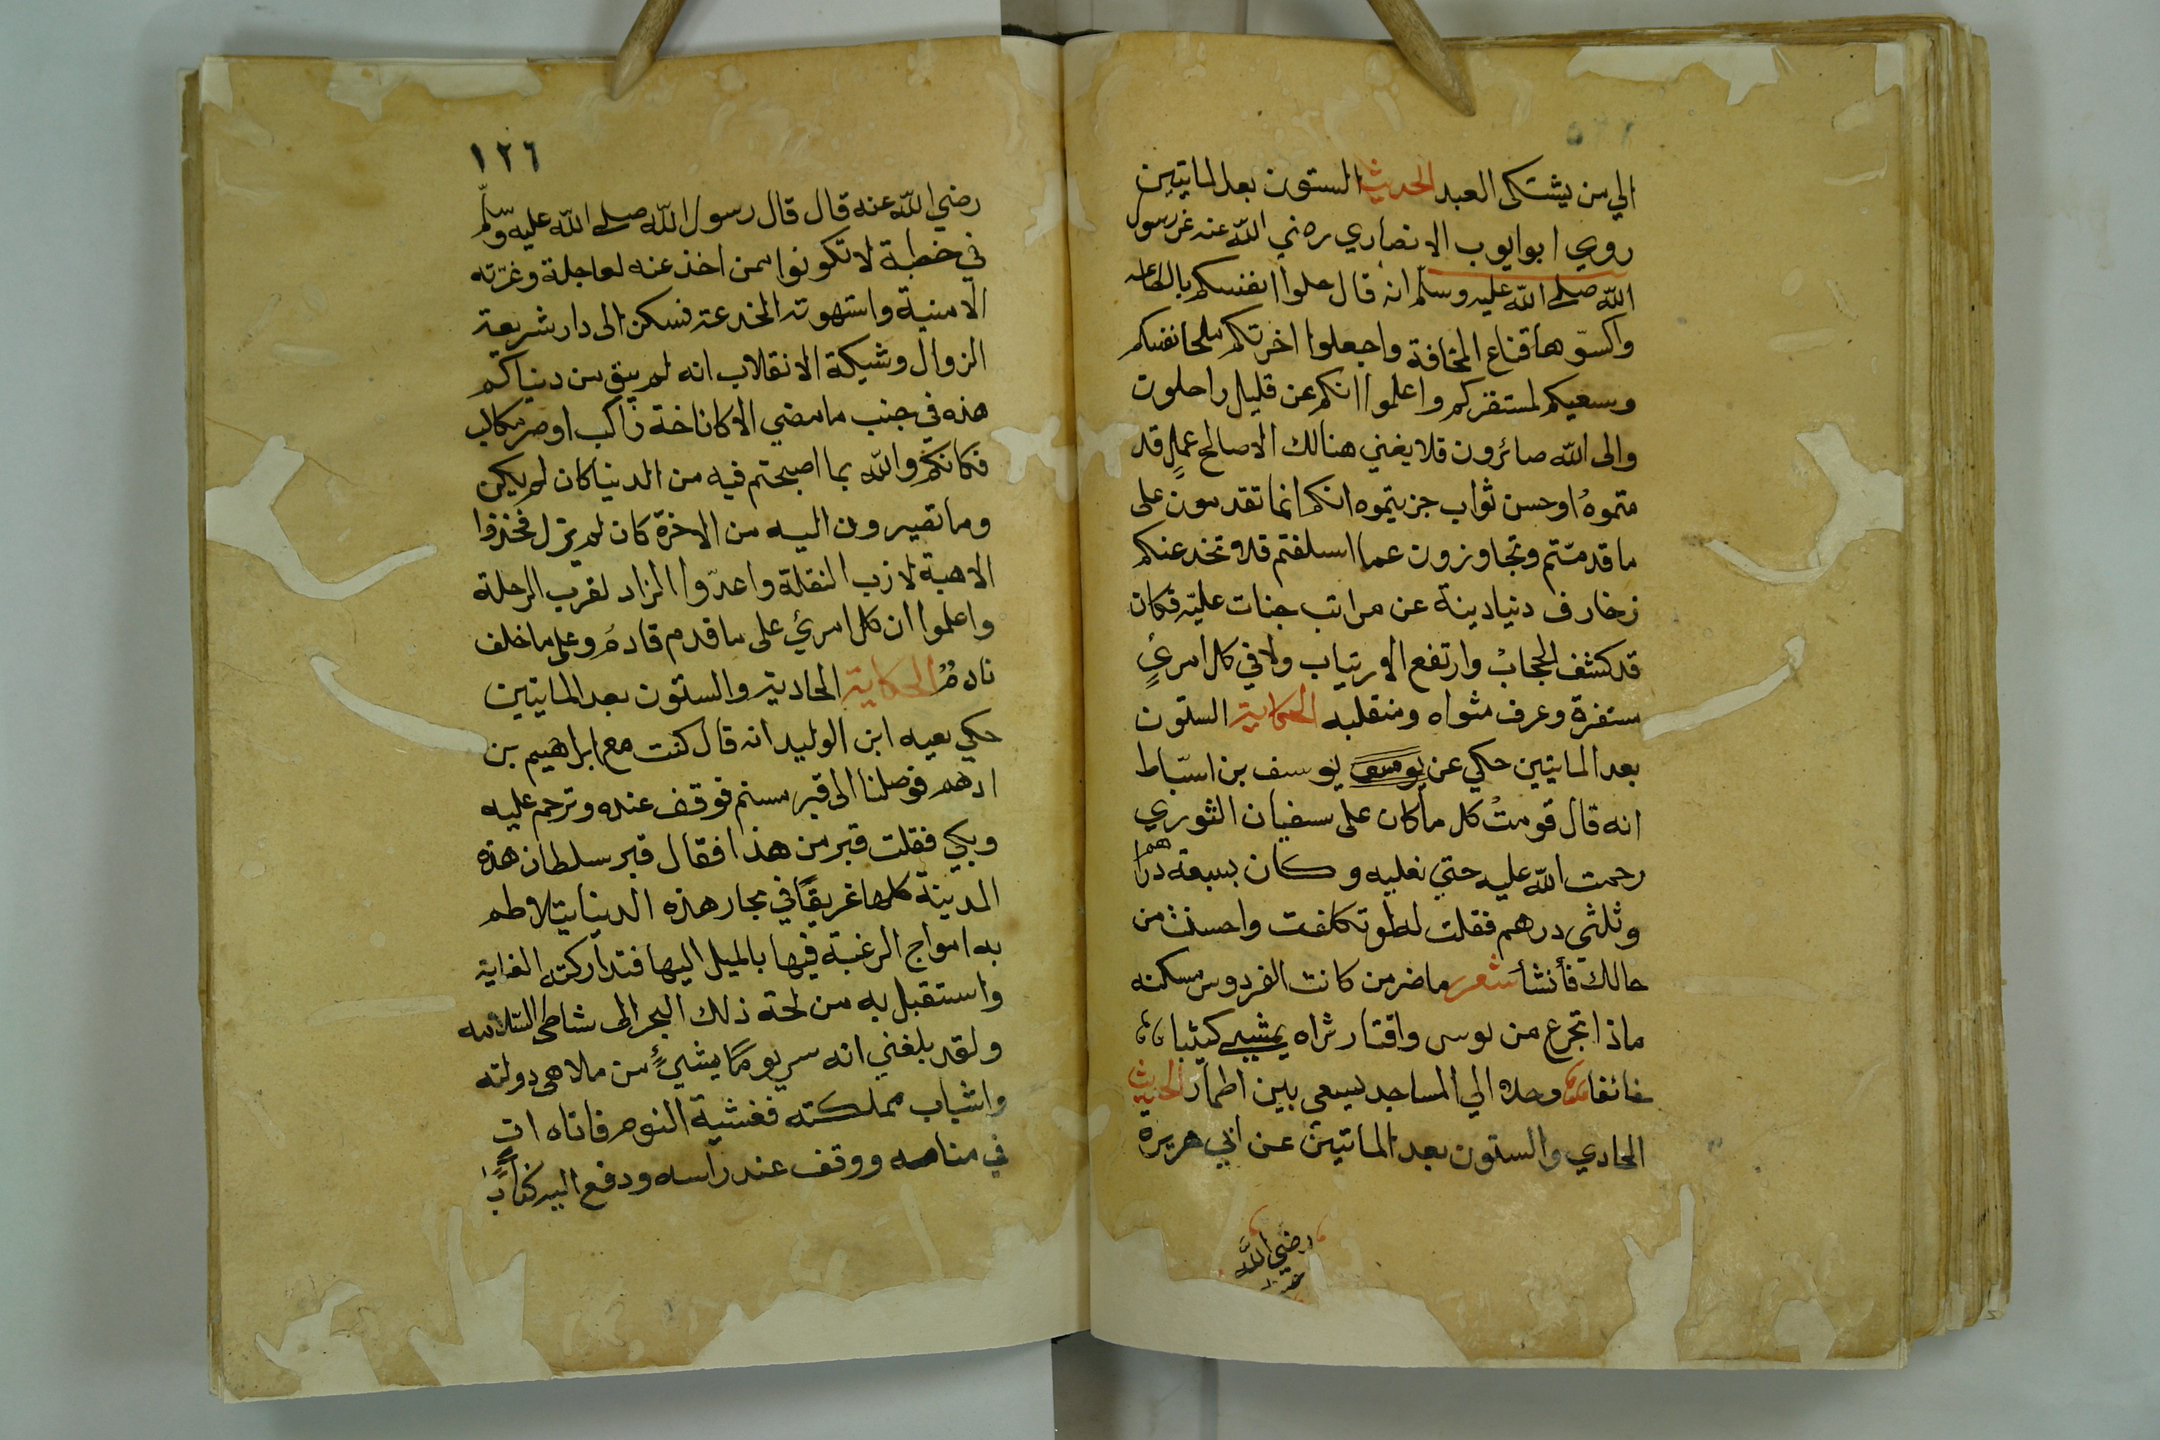 الي من يشتكى العبد الحديث الستون بعد الماتيين
روي ابوايوب الانصاري رضي الله عنه عن رسول
الله صلى الله عليه وسلم انه قال حلوا انفسكم بالطاعه
واكسوها قناع المخافة واجعلوا اخرتكم لانفسكم
وسعيكم لمستقركم واعلموا انكم عن قليل راحلون
والى الله صائرون فلا يغني هنالك الا صالح عمل قد
متموه او حسن ثواب جزيتموه انكم انما تقدمون على
ما قدمتم وتجاوزون عما اسلفتم فلا تخدعنكم
زخارف دنيا دينة عن مراتب جنات علية فكان
قد كشف الحجاب وارتفع الارتياب ولاقي كل امرئ
ستقرة وعرف مثواه ومنقلبه الحكاية الستون
بعد الماتيين حكي عن يوسف يوسف بن اسباط
انه قال قومت كل ما كان على سفيان الثوري
رحمت الله عليه حتي نعليه وكان بسبعة دراهم
وثلثي درهم فقلت له لو تكلفت واحسنت من
حالك فأنشأ شعر ما ضر من كانت الفردوس مسكنه
ماذا تجرع من بوس واقتار تراه يمشي كئيبا
خائفا وحده الي المساجد يسعى بين اطمار الحديث
الحادي والستون بعد الماتيين عن ابي هريرة
رضي الله
عنه
١٢٦
رضي الله عنه قال قال رسول الله صلى الله عليه وسلم
في خطبة لا تكونوا ممن اخذعنه لعاجلة وغرته
الامنية واستهوته الخدعة فسكن الى دار شريعة
الزوال وشيكة الانقلاب انه لم يبق من دنياكم
هذه في جنب ما مضي الا كاناخة راكب او صر مكالب
فكانكم والله بما اصبحتم فيه من الدنيا كان لم يكن
وما تصيرون اليه من الاخرة كان لم يزل فخذوا
الاهبة لازب النقلة واعدوا الزاد لقرب الرحلة
واعلموا ان كل امرئ على ما قدم قادم وعلى ما خلف
نادم الحكاية الحادية والستون بعد الماتيين
حكي بعيه ابن الوليد انه قال كنت مع ابراهيم بن
ادهم فوصلنا الى قبر مسنم فوقف عنده وترحم عليه
وبكي فقلت قبر من هذا فقال قبر سلطان هذه
المدينة كلها غريقا في بحار هذه الدينا يتلاطم
به امواج الرغبة فيها بالميل اليها فتداركته العناية
واستقبل به من لجة ذلك البحر الى شاطئ السلامه
ولقد بلغني انه سر يوما بشيء من ملاهى دولته
واشباب مملكته فغشية النوم فاتاه ات
في منامه ووقف عند راسه ودفع اليه كتابا